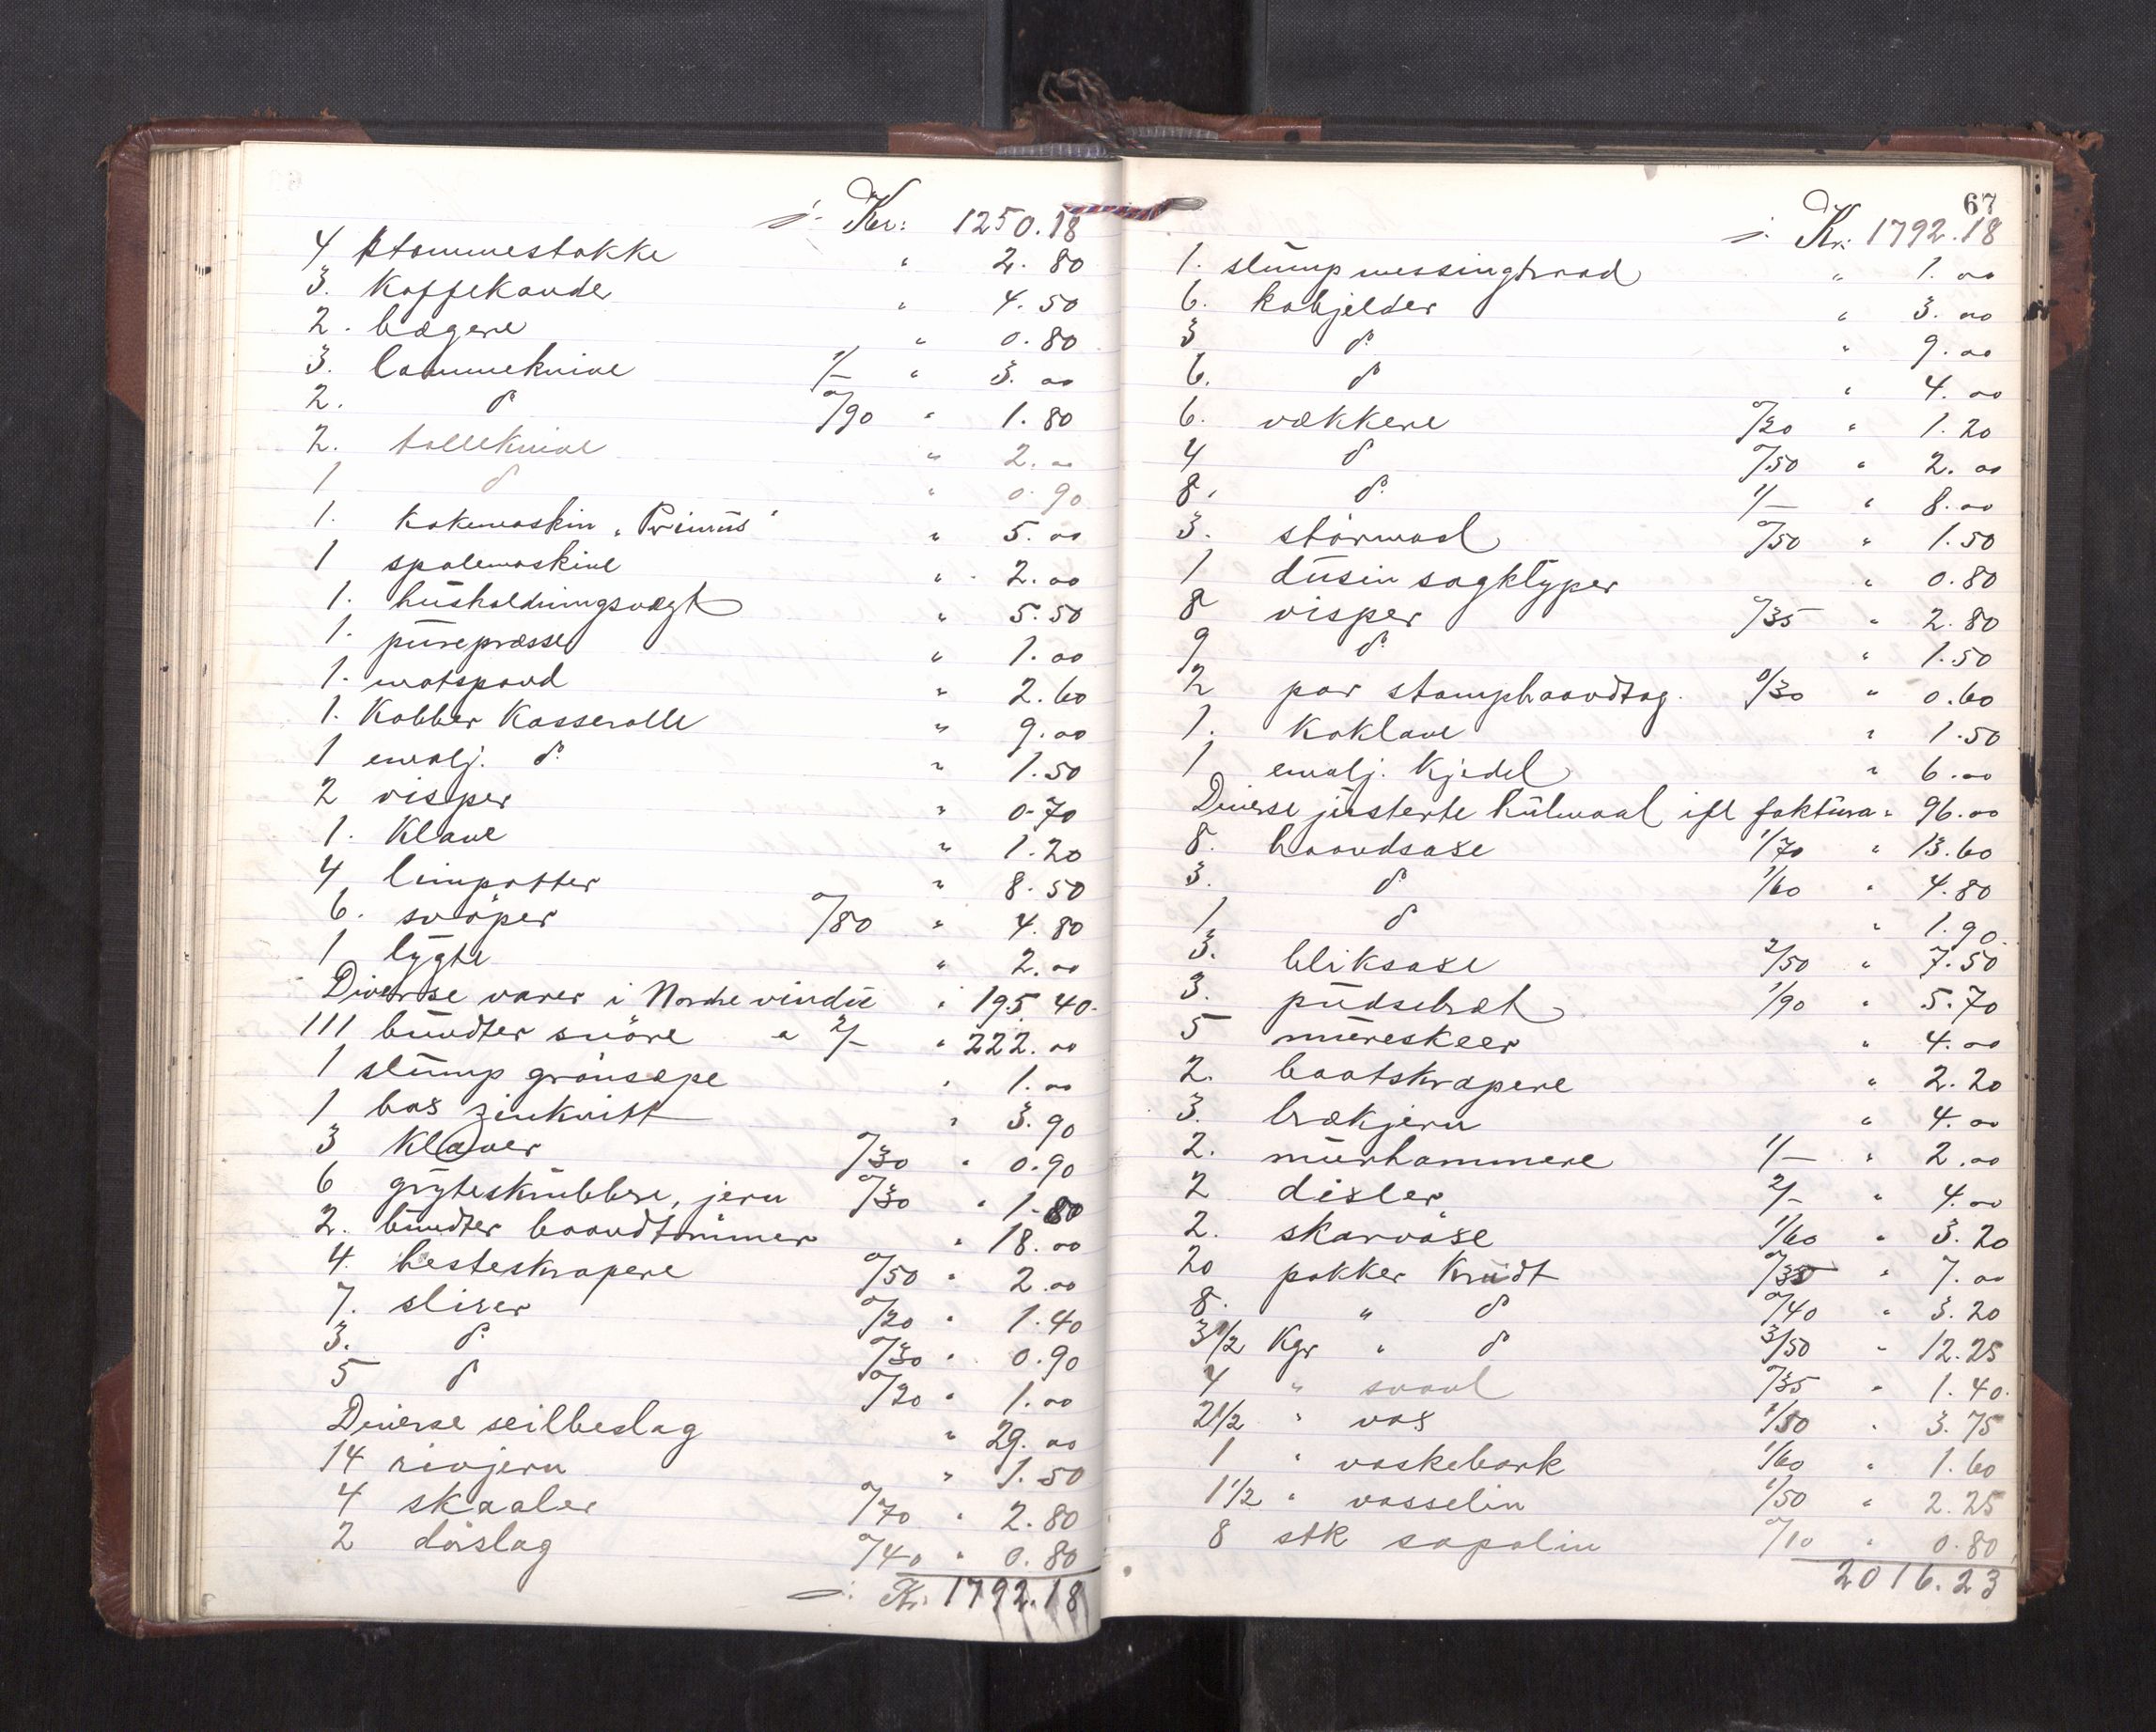 j. Kr: 1250.18
4 tommestokke " 2.80
3. Kaffekander " 4.50
2. bægere " 0.80
3. lommeknive 1/- " 3.00
2. do 0/90 " 1.80
2. tolleknive " 2.00
1 do " 0.90
1. Kokemaskin "Primus" " 5.00
1 spolemaskine " 2.00
1. husholdningsvægt " 5.50
1. purepræsse " 1.00
1. matspand " 2.60
1. Kobber Kasserolle " 9.00
1 emalj. do " 1.50
2 visper " 0.70
1. Klave " 1.20
4 limpotter " 8.50
6. svøper 0/80 " 4.80
1 lygte " 2.00
Diverse varer i Nordre vindu " 195.40.
111 bundter snøre a 2/- " 222.00
1 slump grønsæpe " 1.00
1 bos zinkvitt " 3.90
3 Klaver 0/30 " 0.90
6 gryteskrubbere, jern 0/30 " 1.80
2. bundter baandtømmer " 18.00
4. hesteskrapere 0/50 " 2.00
7. slirer 0/20 " 1.40
3. do 0/30 " 0.90
5 do 0/20 " 1.00
Diverse seilbeslag " 29.00
14 rivjern " 1.50
4 skaaler 0/70 " 2.80
2 dørslag 0/40 " 0.80
j. Kr. 1792.18
67
j. Kr. 1792.18
1. slump messingtraad " 1.00
6. kobjelder " 3.00
3 do " 9.00
6. do " 4.00
6. vækkere 0/20 " 1.20
4 do 0/50 " 2.00
8. do 1/- " 8.00
3. størmad 0/50 " 1.50
1 dusin sagklyper " 0.80
8 visper 0/35 " 2.80
9 do " 1.50
2 par stamphaandtag. 0/30 " 0.60
1. Koklave " 1.50
1 emalj. Kjedel " 6.00
Diverse justerte hulmaal ifl faktura " 96.00
8. haandsaxe 1/70 " 13.60
3. do 1/60 " 4.80
1 do " 1.90.
3. bliksaxe 2/50 " 7.50
3. pudsebræt 1/90 " 5.70
5 mureskeer " 4.00
2. baatskrapere " 2.20
3. brækjern " 4.00
2. murhammere 1/- " 2.00
2 dixler 2/- " 4.00
2. skarvøxe 1/60 " 3.20
20 pakker Krudt 0/35 " 7.00
8. " do 0/40 " 3.20
3 1/2 Kgr " do 3/50 " 12.25
4 " svovl 0/35 " 1.40.
2 1/2 " vox 1/50 " 3.75
1 " vaskebark 1/60 " 1.60
1 1/2 " vasselin 1/50 " 2.25
8 stk sapolin 0/10 " 0.80
2016.23